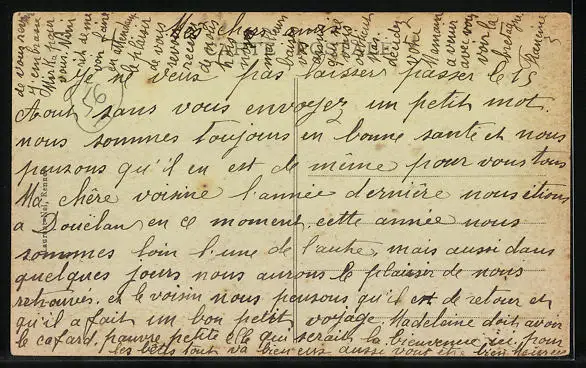 Ma chère amie
CARTE POSTALE
Je ne veux pas laisser passer le 15
Aout sans vous envoyez un petit mot.
nous sommes toujours en bonne santé et nous
pensons qu'il en est de même pour vous tous
Ma chère voisine l'année dernière nous étions
a Douëlan en ce moment, cette année nous
sommes loin l'une de l'autre, mais aussi dans
quelques jours nous aurons le plaisir de nous
retrouvés. et le voisin nous pensons qu'il est de retour et
qu'il a fait un bon petit voyage. Madeleine doit avoir
le cafard, pauvre petite elle qui serait la bienvenue ici, pour
les bêtes tout va bien eux aussi vont être bien heureux
de vous revoir
en attendant
le plaisir
de vous
revoir
recevez
nous
meilleurs
Maman
a venir
avec vous
voir la
bretagne
56
Laurent-Nel, Rennes